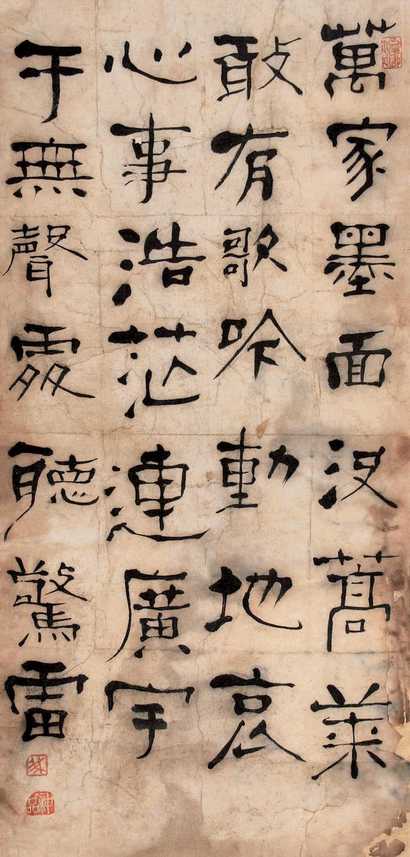 萬家墨面没蒿萊
敢有歌吟動地哀
心事浩茫連廣宇
于無聲處聽驚雷